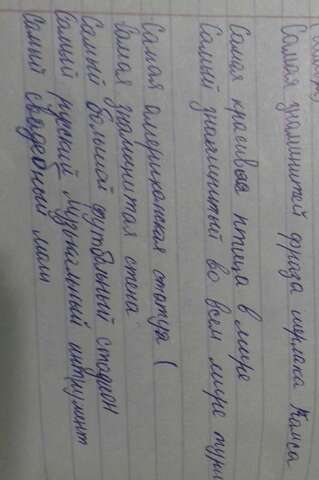 Самая знаминитей фраза шерлака
Самая красивая птица в мире
Самый знаминитый во всем мире
Самая американская статуя (
Самая знаминитая стена
Самый большой футбольный стадион
Самый руский музыкальный интрумент
Самый свадебный